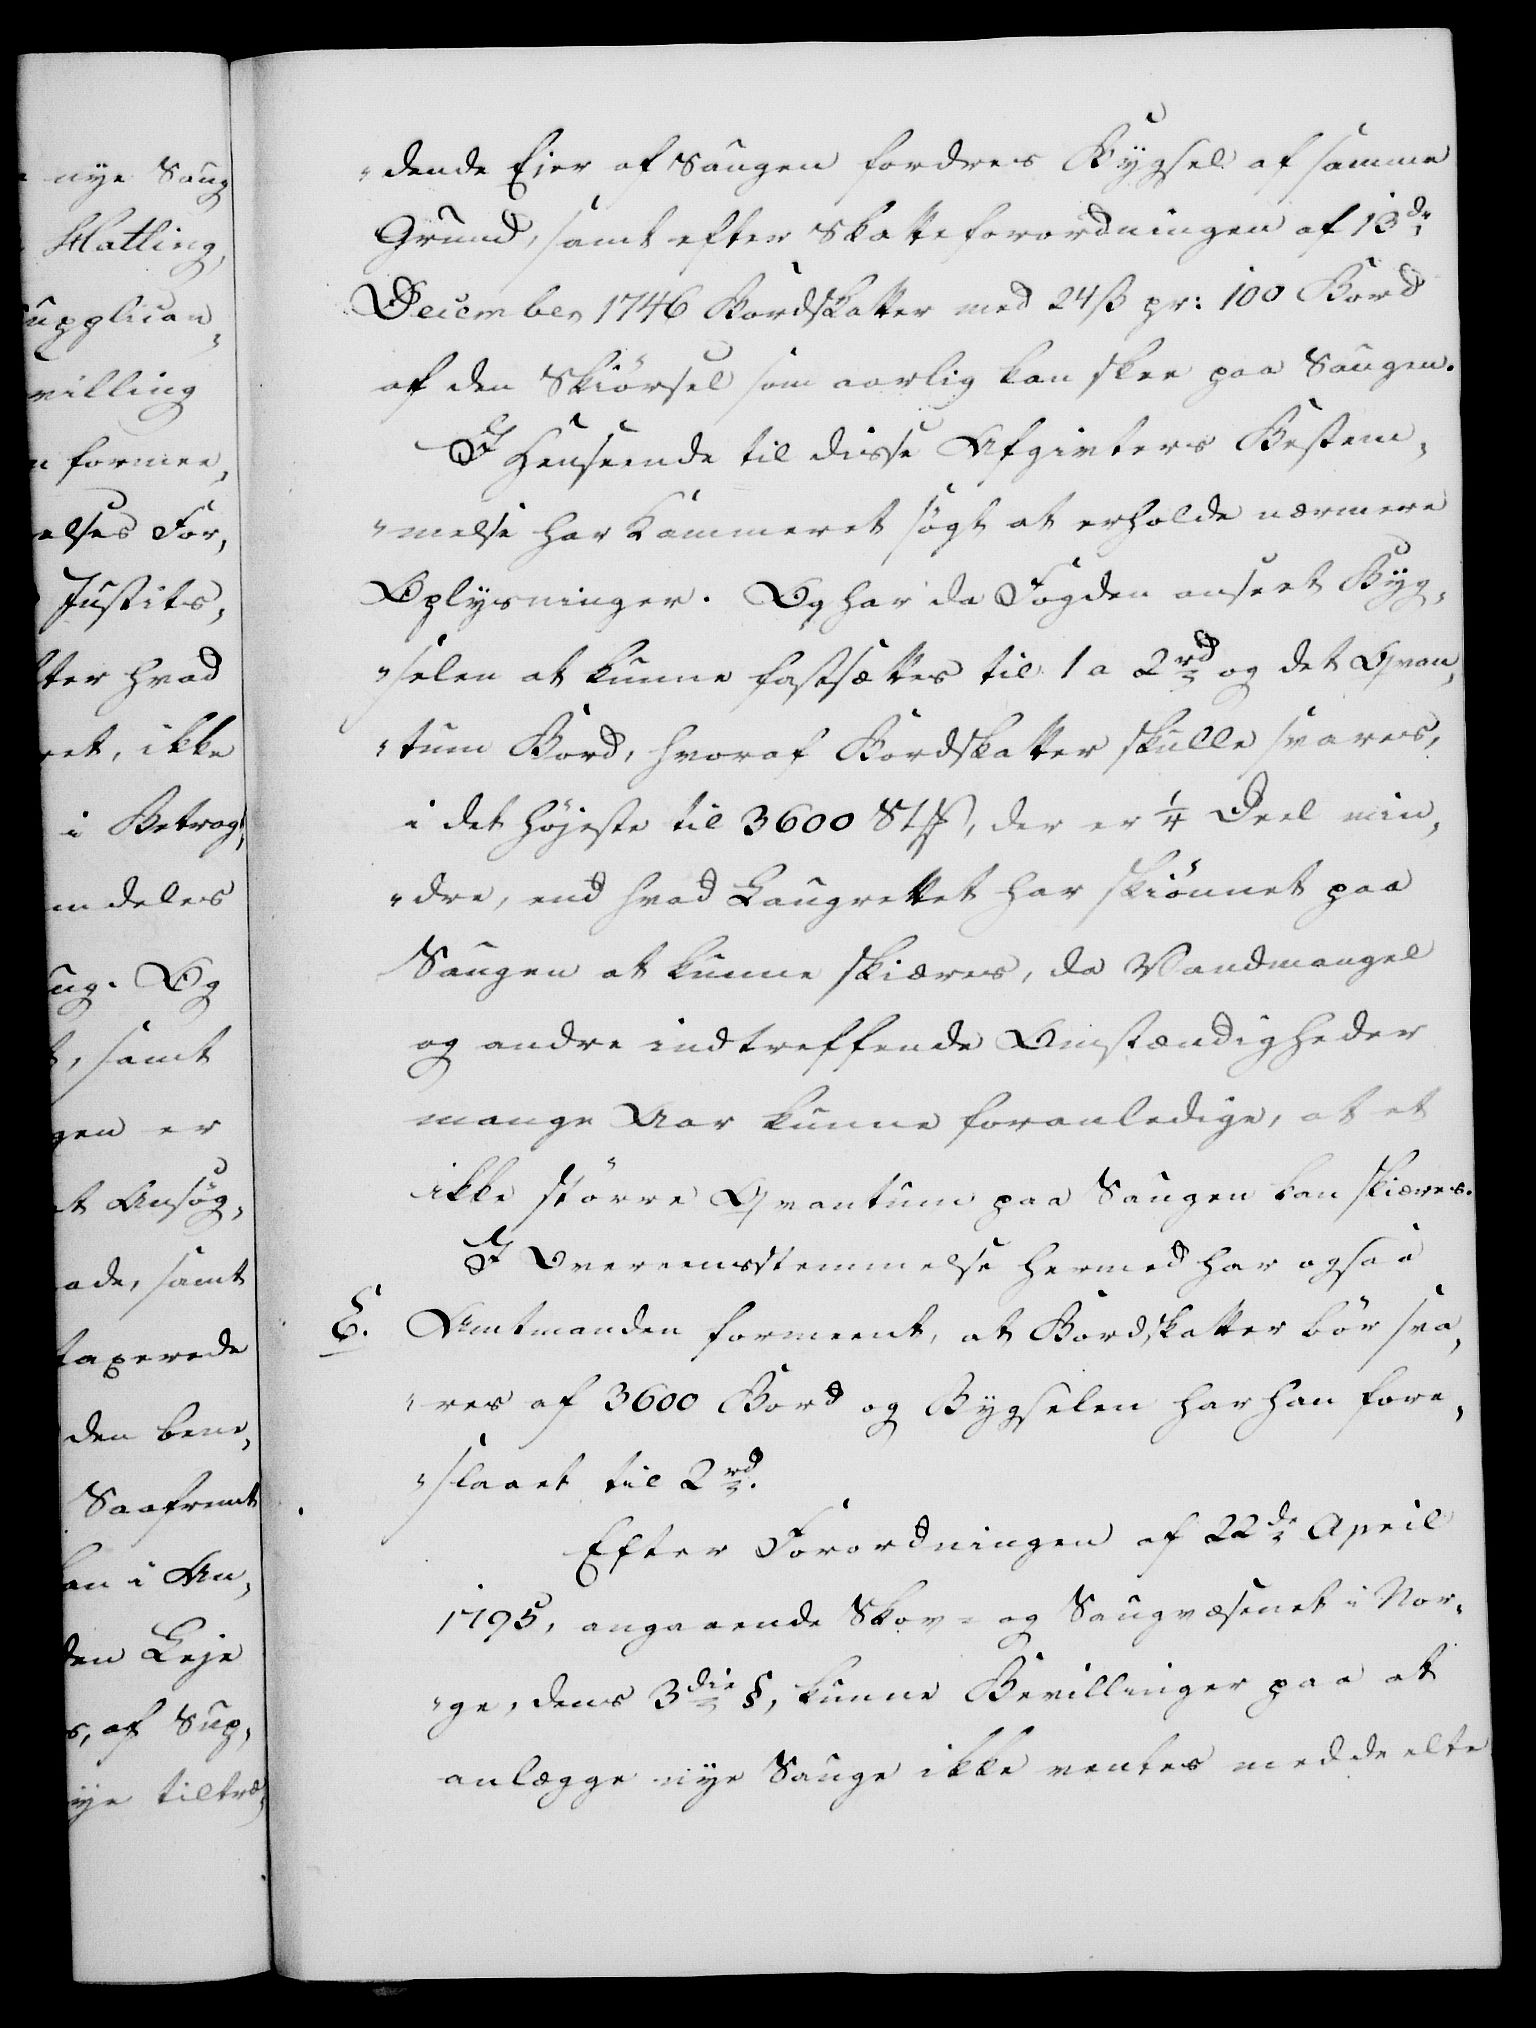 nye Saug
Matling,
upplican„
villing
n formee„
elses For„
Justits„
ter hvad
et, ikke
i Betrag„
m deles
ug. Og
, samt
gen er
t Ansøg„
ade, samt
taxerede
den bene„
Saafremt
an i An„
den Leje
s, af Sup„
ye tiltræ„
„dende Eier af Saugen fordres Bygsel af samme
Grund, samt efter Skatteforordningen af 13de
December 1746 Bordskatter med 24ß pr: 100 Bord
af den Skiörsel som aarlig kan skee paa Saugen.
I Henseende til disse Afgivters Bestem„
„melse har Kammeret søgt at erholde nærmere
Oplysninger. Og har da Fogden anseet Byg„
„selen at kunne fastsættes til 1 a 2rd og det Qvan„
„tum Bord, hvoraf Bordskatter skulle svares,
i det højeste til 3600 Stk, der er ¼ Deel min„
„dre, end hvad Laugrettet har skiönnet paa
Saugen at kunne skiæres, da Vandmangel
og andre indtreffende Omstændigheder
mange Aar kunne foranledige, at et
ikke större Qvantum paa Saugen kan skiæres.
I Overeensstemmelse hermed har ogsaa
E. Amtmanden formeent, at Bordskatter bör sva„
„res af 3600 Bord og Bygselen har han fore„
„slaaet til 2rd.
Efter Forordningen af 22de April
1795, angaaende Skov- og Saugvæsenet i Nor„
„ge, dens 3die §, kunne Bevillinger paa at
anlægge nye Sauge ikke ventes meddeelte